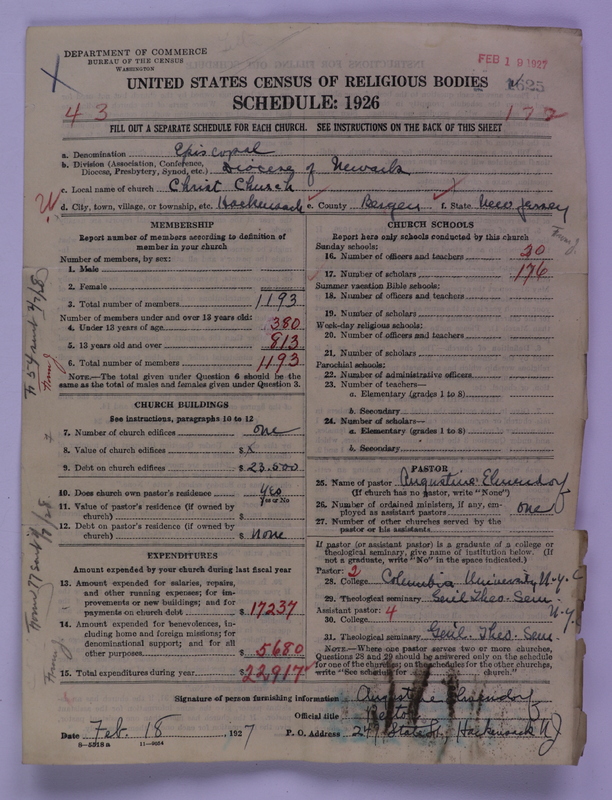 DEPARTMENT OF COMMERCE
BUREAU OF THE CENSUS
WASHINGTON
FEB 19 1927
UNITED STATES CENSUS OF RELIGIOUS BODIES
SCHEDULE: 1926
43
177
FILL OUT A SEPARATE SCHEDULE FOR EACH CHURCH. SEE INSTRUCTIONS ON THE BACK OF THIS SHEET
a. Denomination Episcopal
b. Division (Association, Conference, Diocese, Presbytery, Synod, etc.) Diocese of Newark
c. Local name of church Christ Church
d. City, town, village, or township, etc. Hackensack e. County Bergen f. State New Jersey
MEMBERSHIP
Report number of members according to definition of member in your church
Number of members, by sex:
1. Male
2. Female
3. Total number of members 1193
Number of members under and over 13 years old:
4. Under 13 years of age 380
5. 13 years old and over 813
6. Total number of members 1193
NOTE.—The total given under Question 6 should be the same as the total of males and females given under Question 3.
CHURCH BUILDINGS
See instructions, paragraphs 10 to 12
7. Number of church edifices one
8. Value of church edifices $ x
9. Debt on church edifices $ 23.500
10. Does church own pastor's residence yes
Yes or No
11. Value of pastor's residence (if owned by church) $
12. Debt on pastor's residence (if owned by church) $ None
EXPENDITURES
Amount expended by your church during last fiscal year
13. Amount expended for salaries, repairs, and other running expenses; for improvements or new buildings; and for payments on church debt $ 17237
14. Amount expended for benevolences, including home and foreign missions; for denominational support; and for all other purposes $ 5680
15. Total expenditures during year $ 22917
CHURCH SCHOOLS
Report here only schools conducted by this church
Sunday schools:
16. Number of officers and teachers 20
17. Number of scholars 176
Summer vacation Bible schools:
18. Number of officers and teachers
19. Number of scholars
Week-day religious schools:
20. Number of officers and teachers
21. Number of scholars
Parochial schools:
22. Number of administrative officers
23. Number of teachers—
a. Elementary (grades 1 to 8)
b. Secondary
24. Number of scholars—
a. Elementary (grades 1 to 8)
b. Secondary
PASTOR
25. Name of pastor Augustine Elmendorf
(If church has no pastor, write "None")
26. Number of ordained ministers, if any, employed as assistant pastors one
27. Number of other churches served by the pastor
If pastor (or assistant pastor) is a graduate of a college or theological seminary, give name of institution below. (If not a graduate, write "No" in the space indicated.)
Pastor: 2
28. College Columbia University N.Y.C
29. Theological seminary Genl Theo. Sem.
N.Y.
Assistant pastor: 4
30. College
31. Theological seminary Genl. Theo. Sem
NOTE.—Where one pastor serves two or more churches, Questions 28 and 29 should be answered only on the schedule for one of the churches; on the schedules for the other churches, write "See schedule for church."
Signature of person furnishing information Augustine Elmendorf
Official title Rector
Date Feb. 18, 1927 P. O. Address 247 State St, Hackensack N J
8—5318a 11—9054